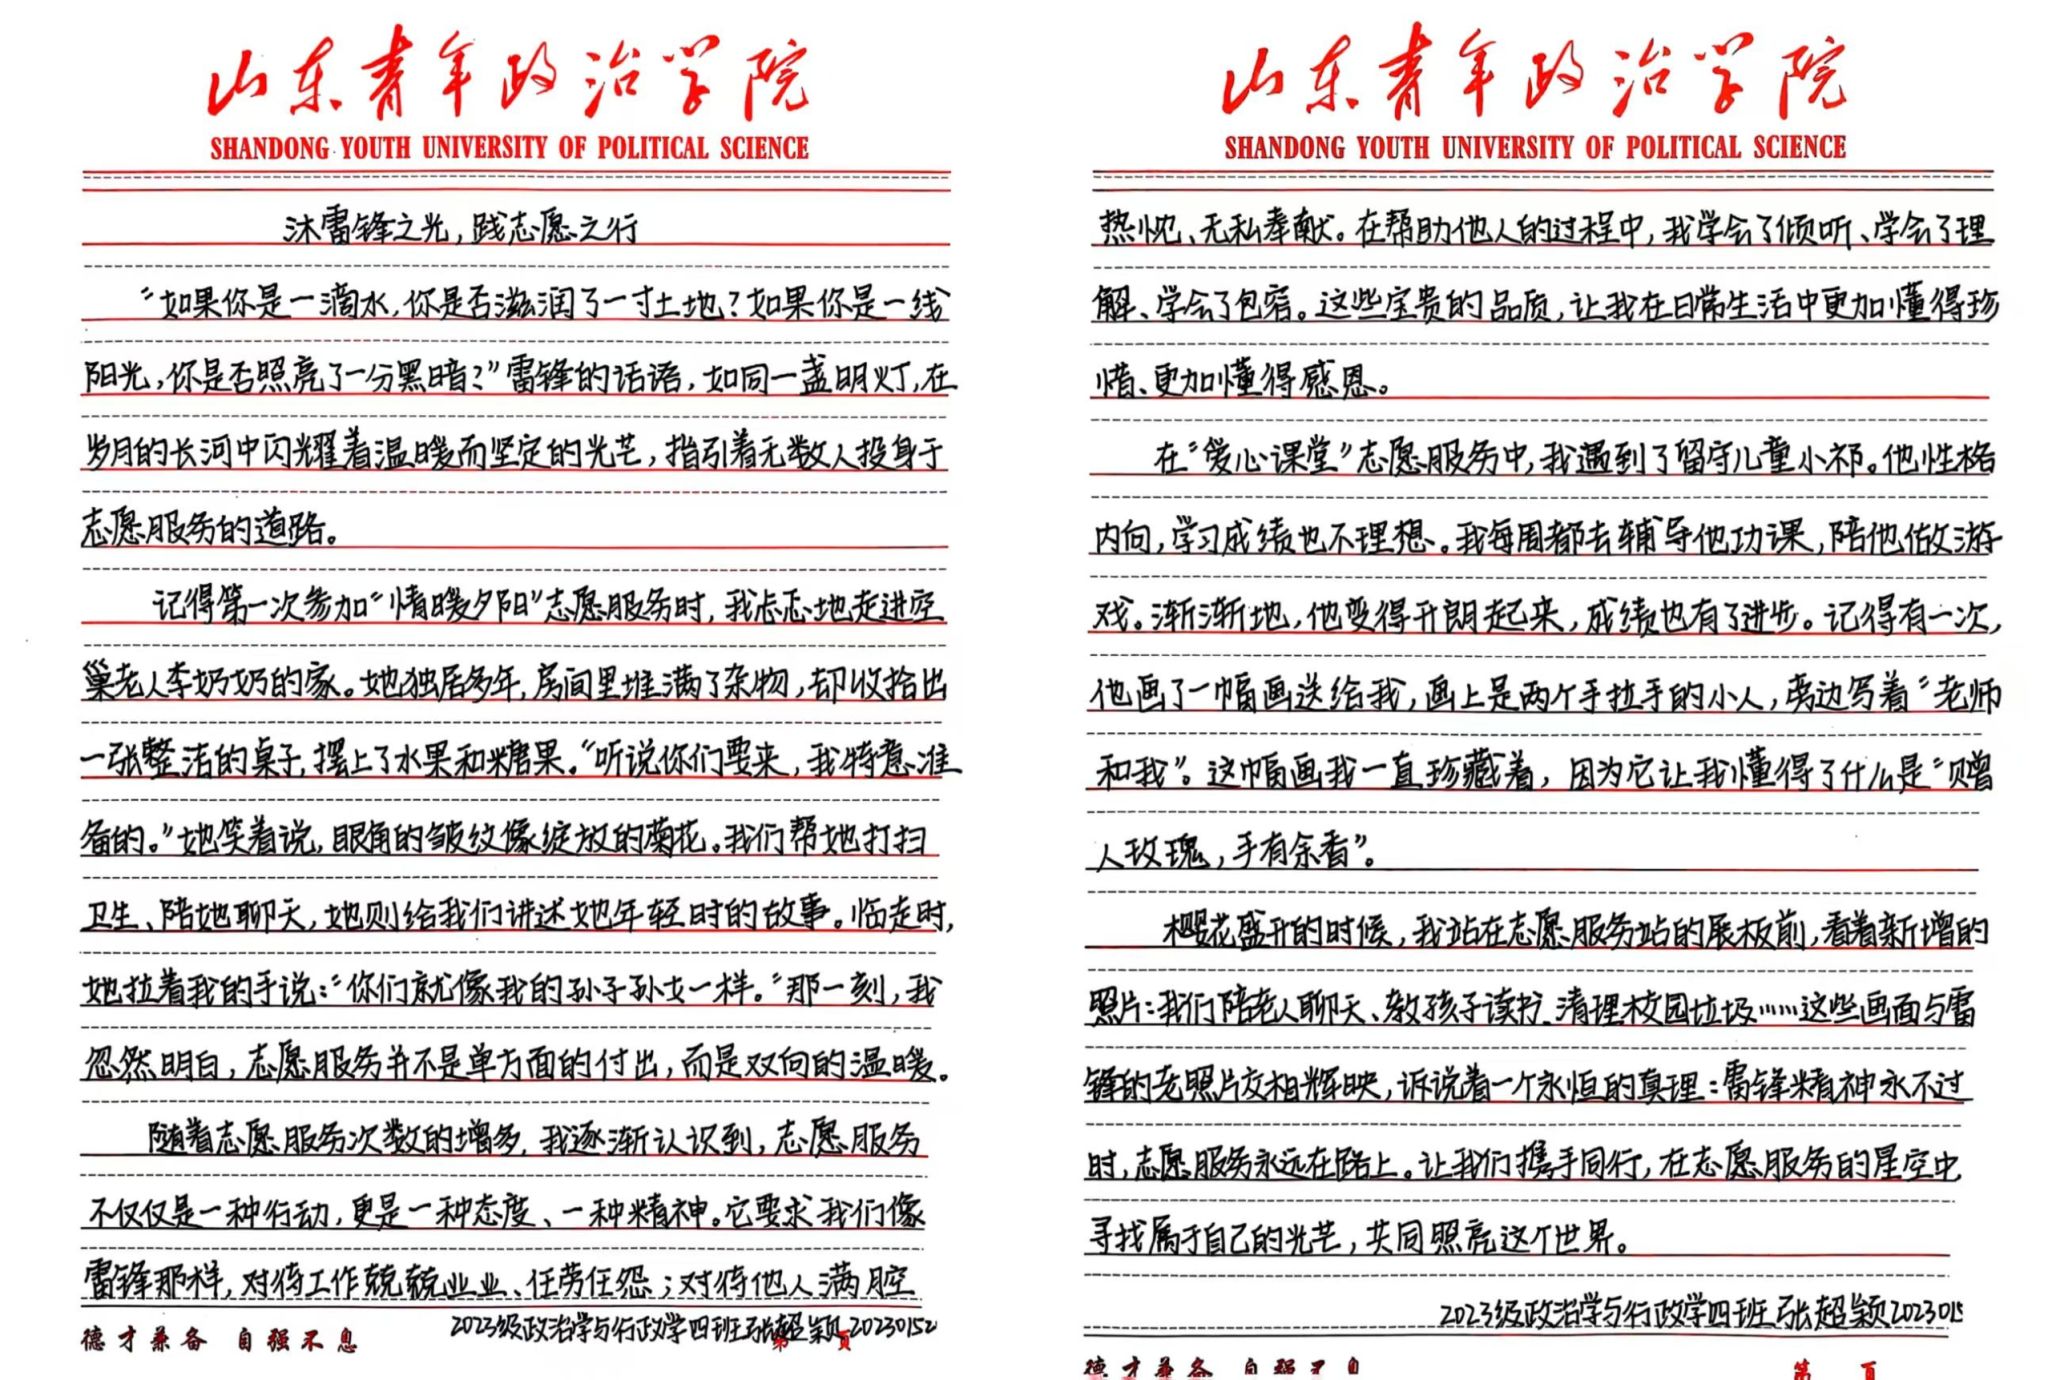 山东青年政治学院
SHANDONG YOUTH UNIVERSITY OF POLITICAL SCIENCE
沐雷锋之光，践志愿之行
“如果你是一滴水，你是否滋润了一寸土地？如果你是一线
阳光，你是否照亮了一分黑暗？”雷锋的话语，如同一盏明灯，在
岁月的长河中闪耀着温暖而坚定的光芒，指引着无数人投身于
志愿服务的道路。
记得第一次参加“情暖夕阳”志愿服务时，我忐忑地走进空
巢老人李奶奶的家。她独居多年，房间里堆满了杂物，却收拾出
一张整洁的桌子，摆上了水果和糖果。“听说你们要来，我特意准
备的。”她笑着说，眼角的皱纹像绽放的菊花。我们帮她打扫
卫生、陪她聊天，她则给我们讲述她年轻时的故事。临走时，
她拉着我的手说：“你们就像我的孙子孙女一样。”那一刻，我
忽然明白，志愿服务并不是单方面的付出，而是双向的温暖。
随着志愿服务次数的增多，我逐渐认识到，志愿服务
不仅仅是一种行动，更是一种态度、一种精神。它要求我们像
雷锋那样，对待工作兢兢业业、任劳任怨；对待他人满腔
2023级政治学与行政学四班张超颖20230152
德才兼备 自强不息
第 页
山东青年政治学院
SHANDONG YOUTH UNIVERSITY OF POLITICAL SCIENCE
热忱、无私奉献。在帮助他人的过程中，我学会了倾听、学会了理
解、学会了包容。这些宝贵的品质，让我在日常生活中更加懂得珍
惜、更加懂得感恩。
在“爱心课堂”志愿服务中，我遇到了留守儿童小祁。他性格
内向，学习成绩也不理想。我每周都去辅导他功课，陪他做游
戏。渐渐地，他变得开朗起来，成绩也有了进步。记得有一次，
他画了一幅画送给我，画上是两个手拉手的小人，旁边写着“老师
和我”。这幅画我一直珍藏着，因为它让我懂得了什么是“赠
人玫瑰，手有余香”。
樱花盛开的时候，我站在志愿服务站的展板前，看着新增的
照片：我们陪老人聊天、教孩子读书、清理校园垃圾……这些画面与雷
锋的老照片交相辉映，诉说着一个永恒的真理：雷锋精神永不过
时，志愿服务永远在路上。让我们携手同行，在志愿服务的星空中
寻找属于自己的光芒，共同照亮这个世界。
2023级政治学与行政学四班张超颖202301
德才兼备 自强不息
第 页